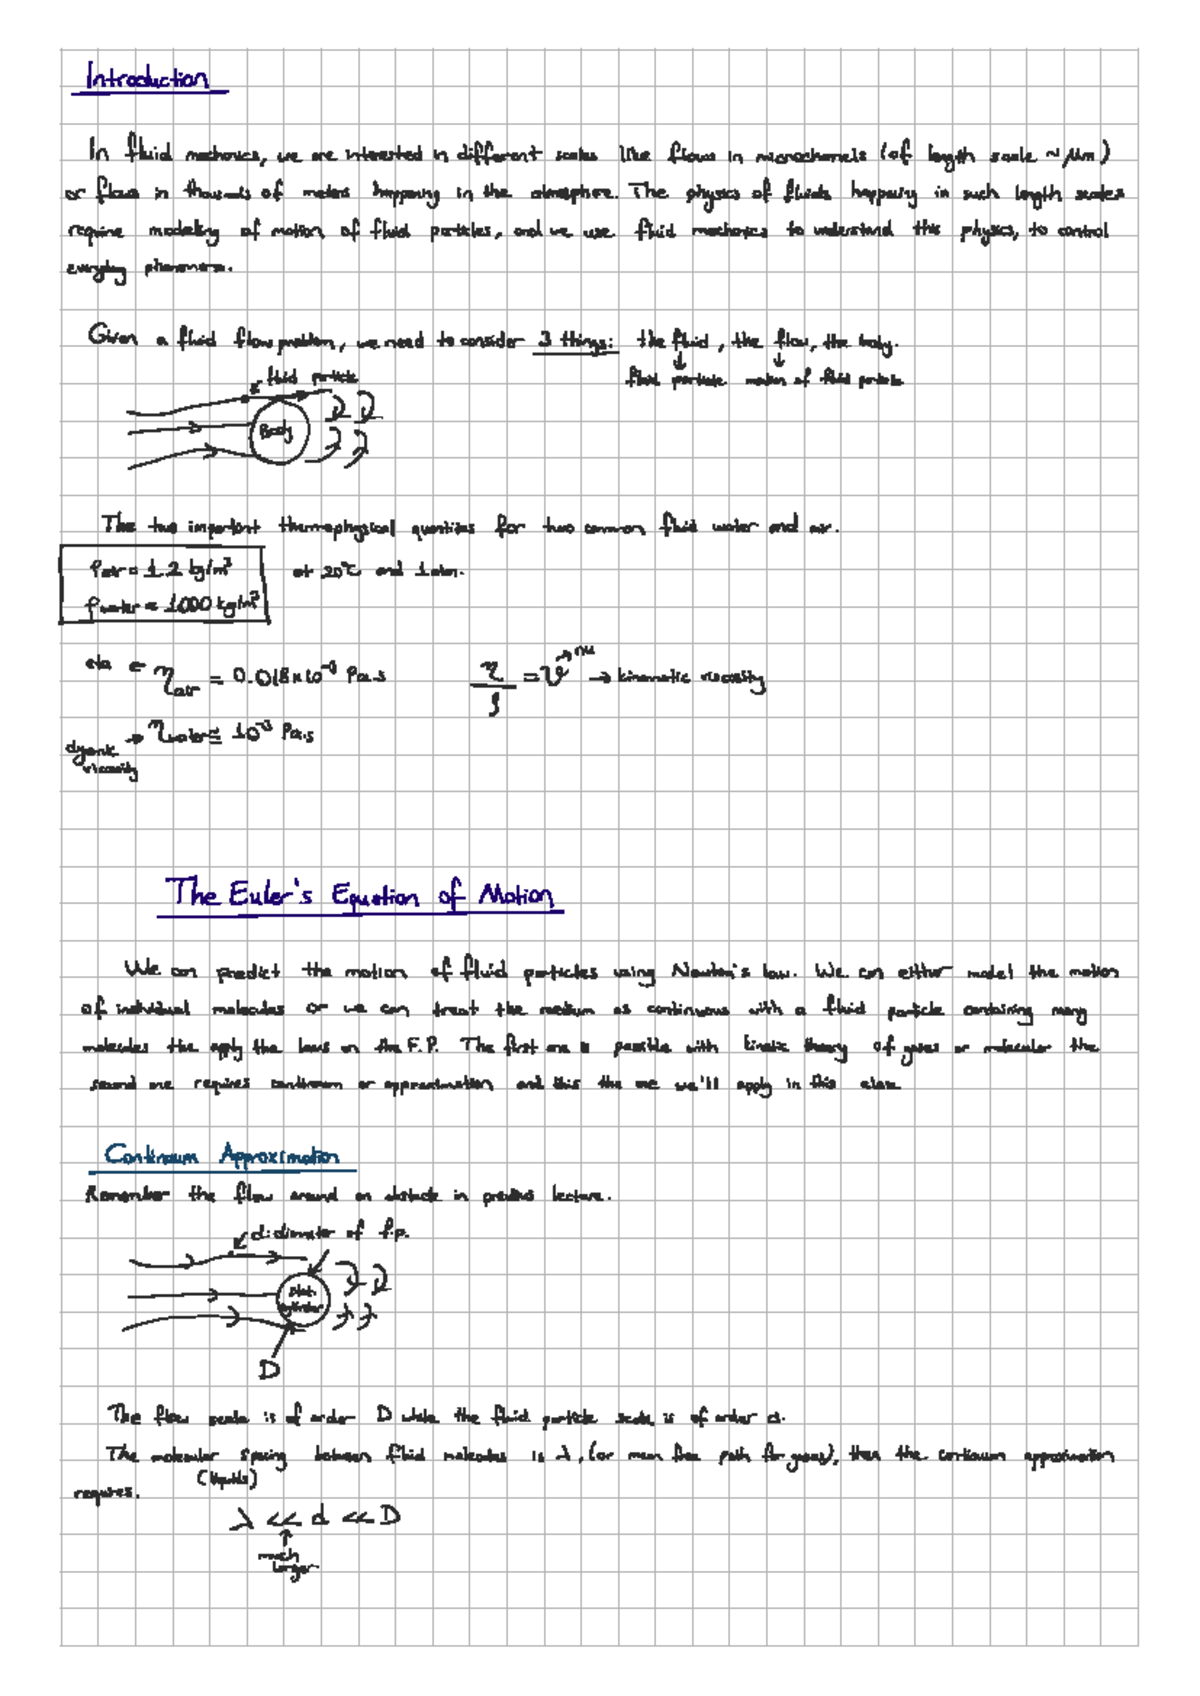 Introduction
In fluid mechanics, we are interested in different scales like flows in microchannels (of length scale ~ μm)
or flows in thousands of meters happening in the atmosphere. The physics of fluids happening in such length scales
require modeling of motion of fluid particles, and we use fluid mechanics to understand this physics, to control
everyday phenomena.
Given a fluid flow problem, we need to consider 3 things: the fluid, the flow, the body.
↓ ↓
fluid particle motion of fluid particle
fluid particle
Body
The two important thermophysical quantities for two common fluid water and air.
ρair = 1.2 kg/m³ at 20°C and 1 atm.
ρwater = 1000 kg/m³
eta ← ηair = 0.018×10⁻³ Pa.s
η/ρ = ν → nu → kinematic viscosity
dynamic viscosity → ηwater ≅ 10⁻³ Pa.s
The Euler's Equation of Motion
We can predict the motion of fluid particles using Newton's law. We can either model the motion
of individual molecules or we can treat the medium as continuous with a fluid particle containing many
molecules the apply the laws on the F.P. The first one is possible with kinetic theory of gases or molecular the
second one requires continuum or approximation and this the one we'll apply in this class
Continuum Approximation
Remember the flow around an obstacle in previous lecture.
d: diameter of f.p.
cylinder
D
The flow scale is of order D while the fluid particle scale is of order d.
The molecular spacing between fluid molecules is λ, (or mean free path for gases), then the continuum approximation
(liquids)
requires.
λ << d << D
↑
much
larger